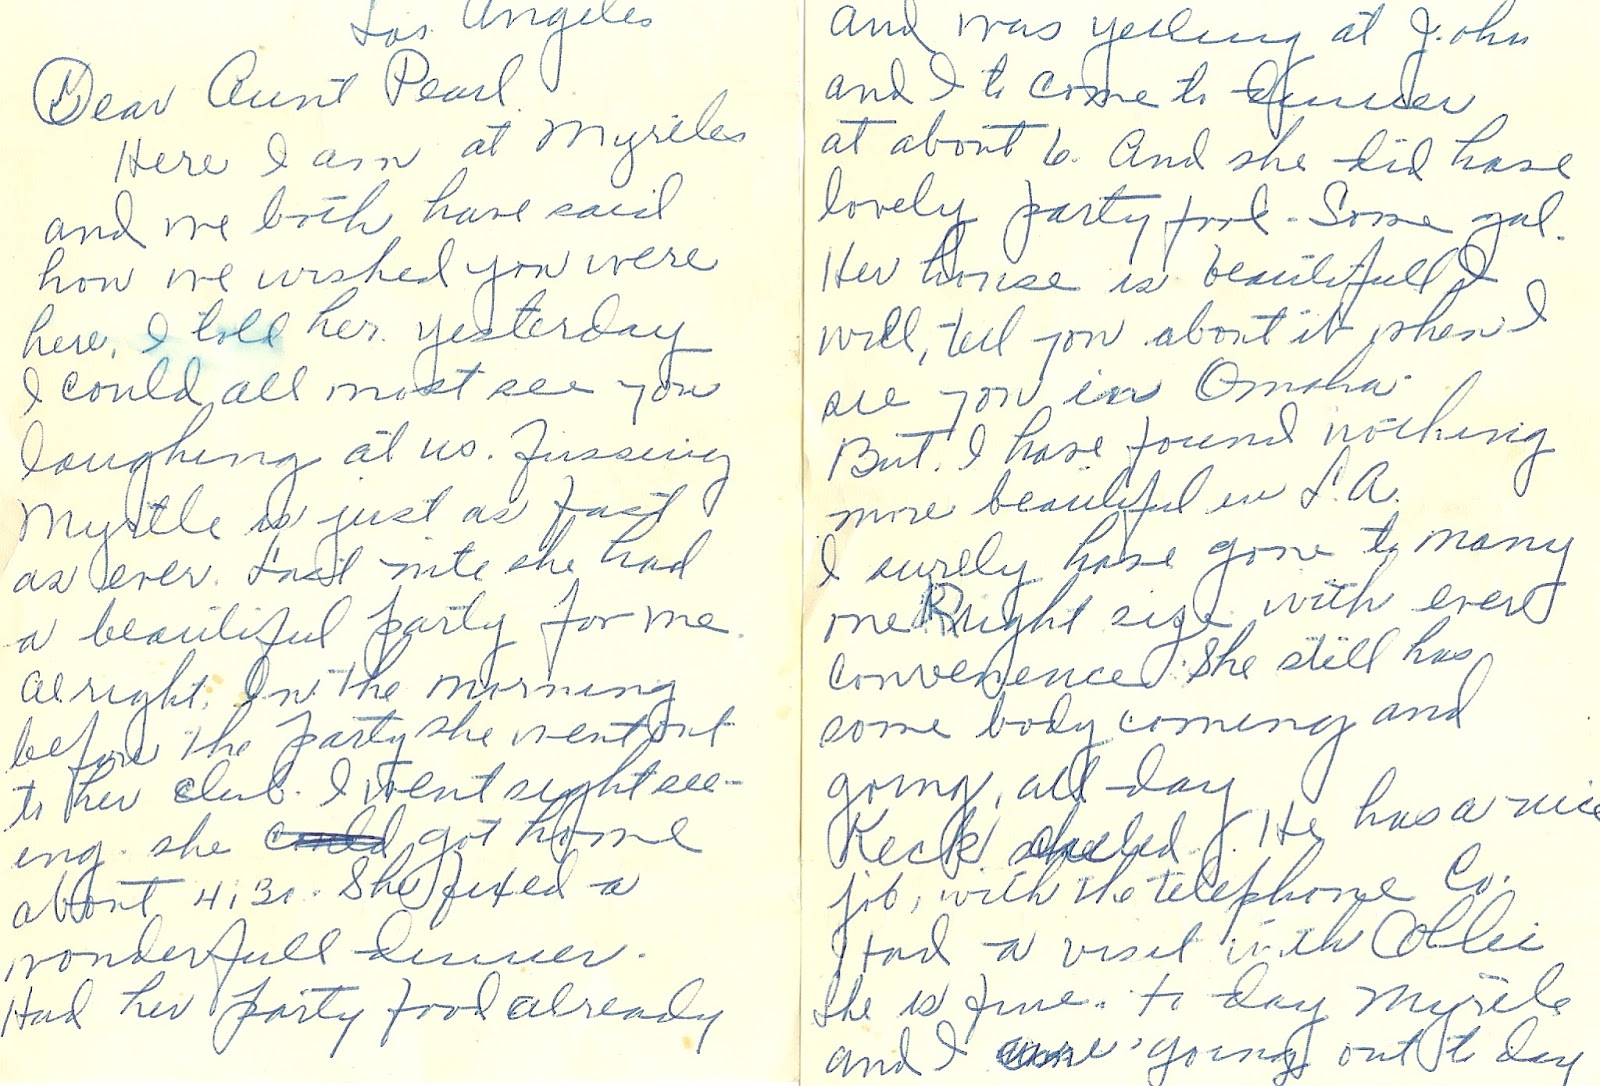 Los Angeles
Dear Aunt Pearl.
Here I am at Myrtles
and we both have said
how we wished you were
here, I told her yesterday
I could all most see you
laughing at us. Fussing
Myrtle is just as fast
as ever. Last nite she had
a beautiful party for me.
alright, In the morning
before the party she went out
to her club. I went sight see-
ing. she could got home
about 4:30. She fixed a
wonderfull dinner.
Had her party food already
and was yelling at John
and I to come to dinner
at about 6. And she did have
lovely party food - Some gal.
Her house is beautifull I
will, tell you about it when I
see you in Omaha.
But. I have found nothing
more beautiful in L.A.
I surely have gone to many
one Right size with every
convenence. She still has
some body coming and
going, all day
Keck called. He has a nice
job, with the telephone Co.
Had a visit with Ollie
she is fine. to day Myrtle
and I are going out to day